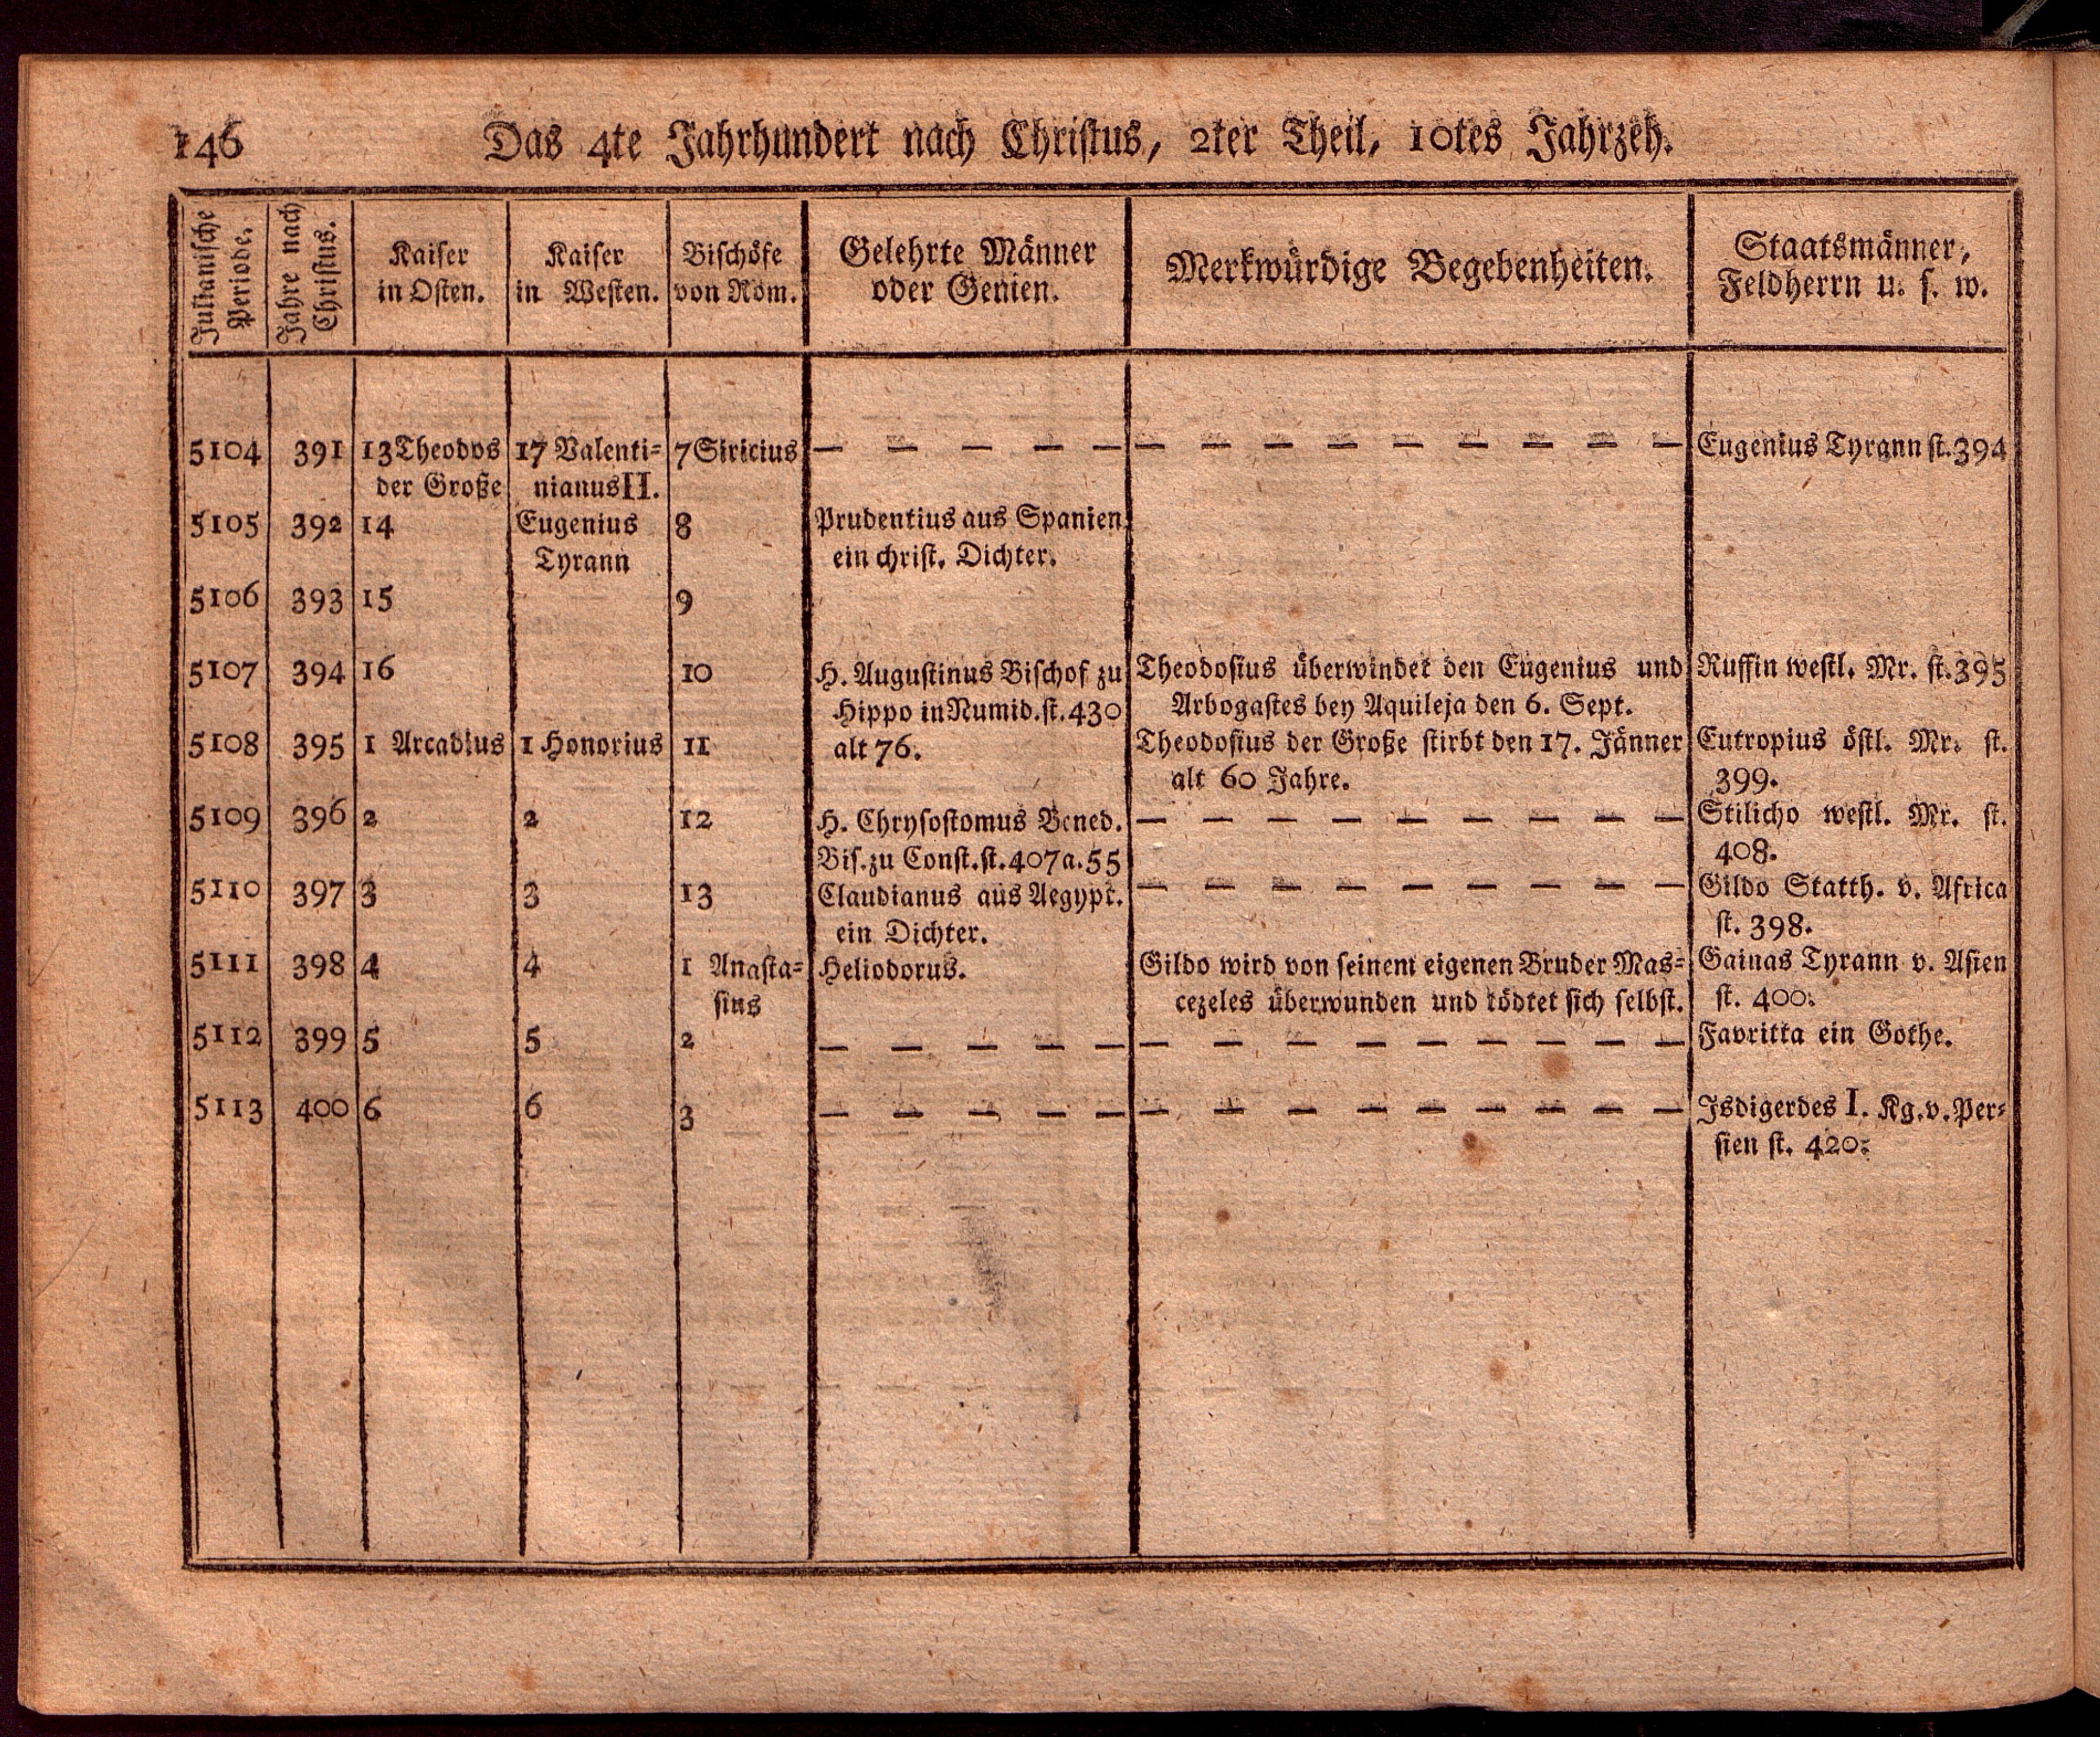 146 Das 4te Jahrhundert nach Christus, 2ter Theil, 10tes Jahrzeh.
Julianische Periode.
Jahre nach Christus.
Kaiser in Osten.
Kaiser in Westen.
Bischöfe von Rom.
Gelehrte Männer oder Genien.
Merkwürdige Begebenheiten.
Staatsmänner, Feldherrn u. s. w.
5104 391 13 Theodos 17 Valenti= 7 Siricius — — — — — — — — — — — — — Eugenius Tyrann st. 394
der Große nianus II.
5105 392 14 Eugenius 8 Prudentius aus Spanien
Tyrann ein christ. Dichter.
5106 393 15 9
5107 394 16 10 H. Augustinus Bischof zu Theodosius überwindet den Eugenius und Ruffin westl. Mr. st. 395
Hippo in Numid. st. 430 Arbogastes bey Aquileja den 6. Sept.
5108 395 1 Arcadius 1 Honorius 11 alt 76. Theodosius der Große stirbt den 17. Jänner Eutropius östl. Mr. st.
alt 60 Jahre. 399.
5109 396 2 2 12 H. Chrysostomus Bened. — — — — — — — — Stilicho westl. Mr. st.
Bis. zu Const. st. 407 a. 55 408.
5110 397 3 3 13 Claudianus aus Aegypt. — — — — — — — — Gildo Statth. v. Africa
ein Dichter. st. 398.
5111 398 4 4 1 Anasta= Heliodorus. Gildo wird von seinem eigenen Bruder Mas= Gainas Tyrann v. Asien
sius cezeles überwunden und tödtet sich selbst. st. 400.
5112 399 5 5 2 — — — — — — — — — — — — — Favritta ein Gothe.
5113 400 6 6 3 — — — — — — — — — — — — — Isdigerdes I. Kg. v. Per=
sien st. 420.